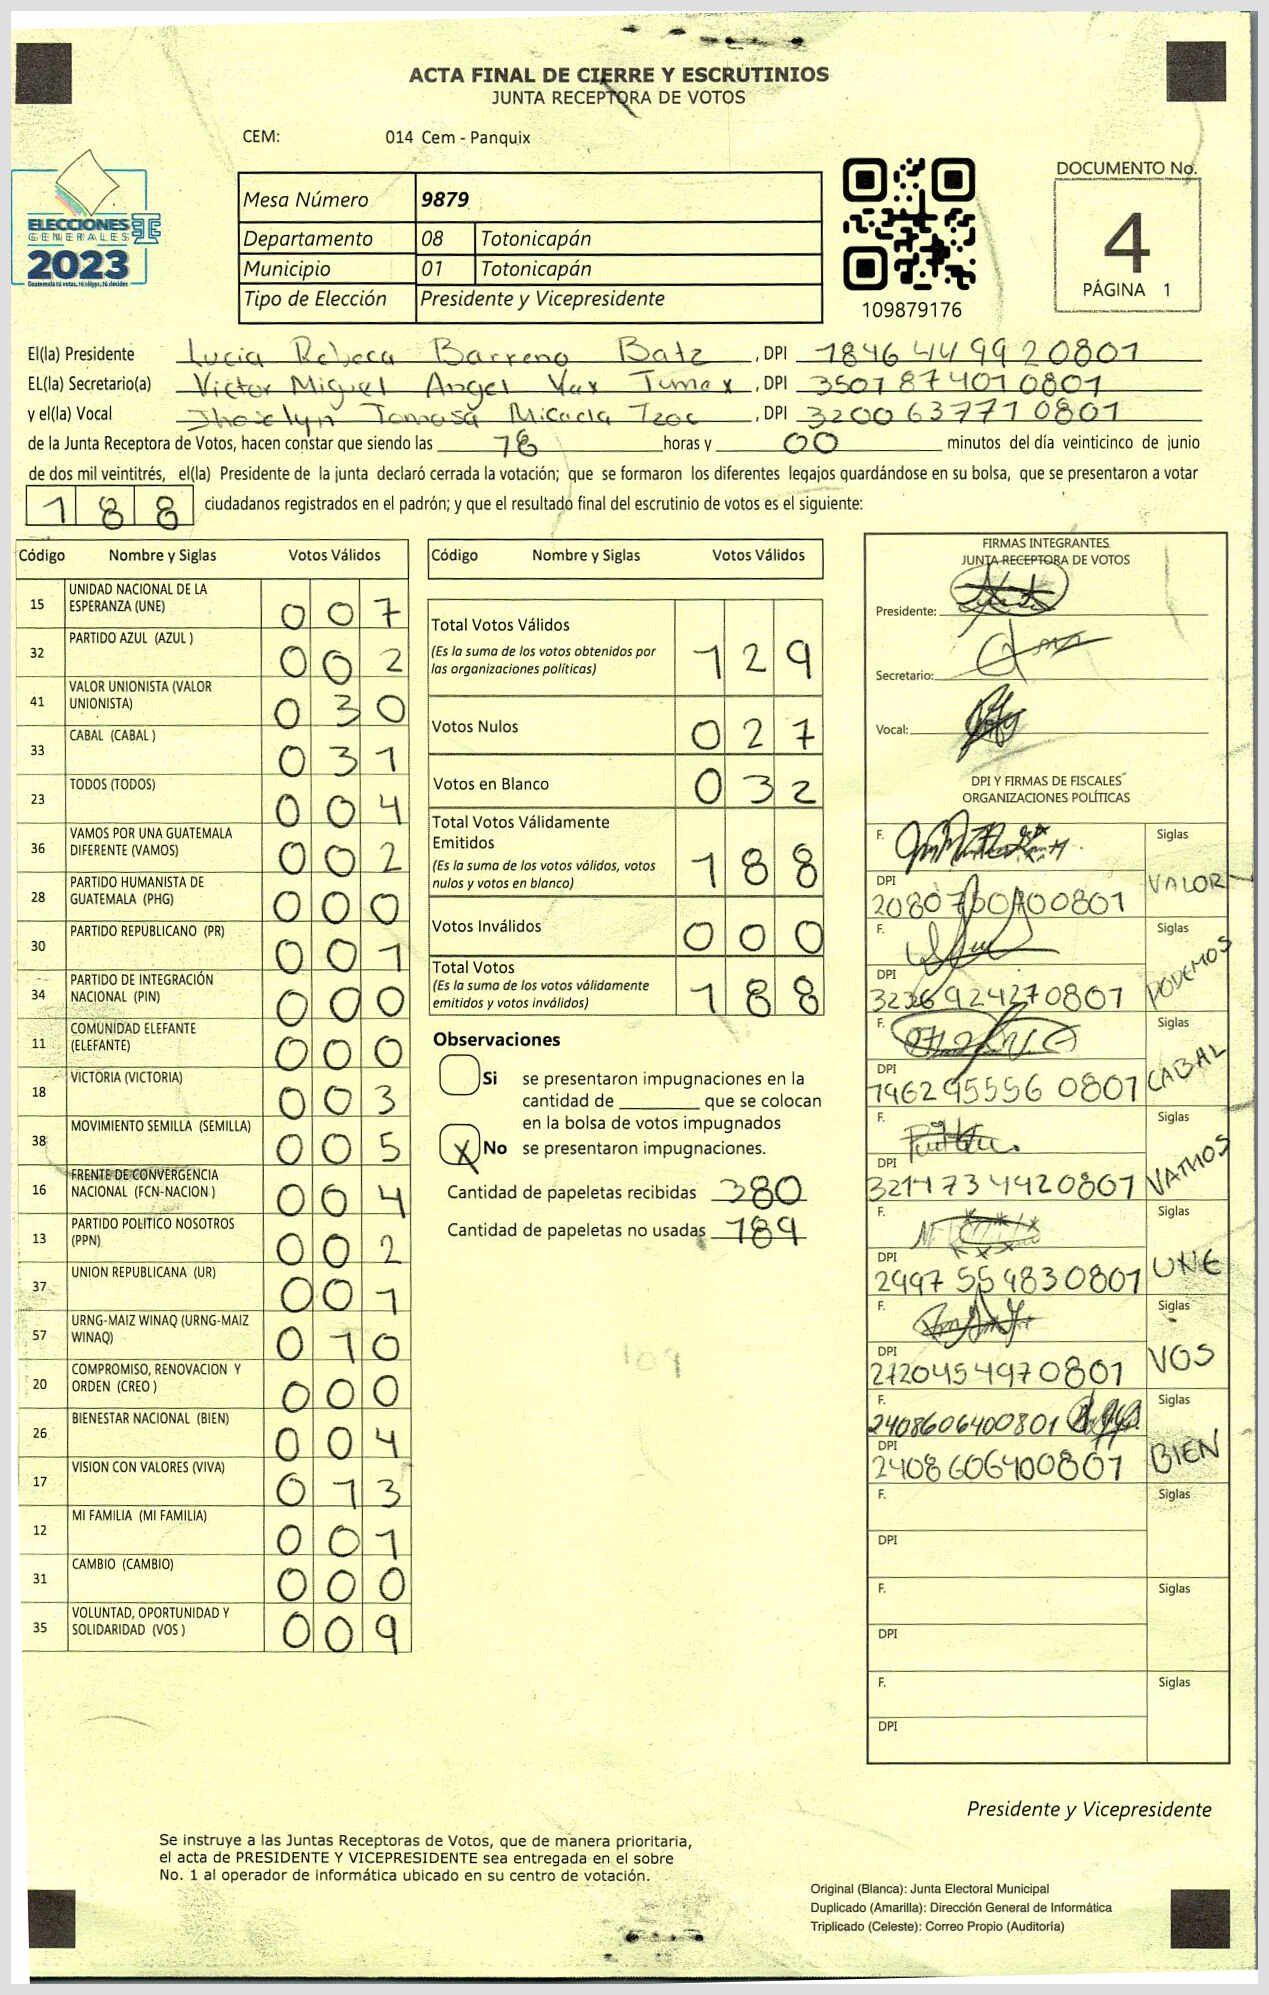 ACTA FINAL DE CIERRE Y ESCRUTINIOS
JUNTA RECEPTORA DE VOTOS
CEM: 014 Cem - Panquix
DOCUMENTO No.
4
PÁGINA 1
ELECCIONES
GENERALES
2023
Guatemala tú votas, tú eliges, tú decides
Mesa Número 9879
Departamento 08 Totonicapán
Municipio 01 Totonicapán
Tipo de Elección Presidente y Vicepresidente
109879176
El(la) Presidente Lucia Rebeca Barreno Batz , DPI 1846449920801
EL(la) Secretario(a) Victor Miguel Angel Vax Tumax , DPI 3501874010801
y el(la) Vocal Jhoselyn Tomasa Micaela Tzoc , DPI 3200637710801
de la Junta Receptora de Votos, hacen constar que siendo las 18 horas y 00 minutos del día veinticinco de junio
de dos mil veintitrés, el(la) Presidente de la junta declaró cerrada la votación; que se formaron los diferentes legajos guardándose en su bolsa, que se presentaron a votar
188 ciudadanos registrados en el padrón; y que el resultado final del escrutinio de votos es el siguiente:
Código Nombre y Siglas Votos Válidos
15 UNIDAD NACIONAL DE LA ESPERANZA (UNE) 007
32 PARTIDO AZUL (AZUL ) 002
41 VALOR UNIONISTA (VALOR UNIONISTA) 030
33 CABAL (CABAL ) 031
23 TODOS (TODOS) 004
36 VAMOS POR UNA GUATEMALA DIFERENTE (VAMOS) 002
28 PARTIDO HUMANISTA DE GUATEMALA (PHG) 000
30 PARTIDO REPUBLICANO (PR) 001
34 PARTIDO DE INTEGRACIÓN NACIONAL (PIN) 000
11 COMUNIDAD ELEFANTE (ELEFANTE) 000
18 VICTORIA (VICTORIA) 003
38 MOVIMIENTO SEMILLA (SEMILLA) 005
16 FRENTE DE CONVERGENCIA NACIONAL (FCN-NACION ) 004
13 PARTIDO POLITICO NOSOTROS (PPN) 002
37 UNION REPUBLICANA (UR) 001
57 URNG-MAIZ WINAQ (URNG-MAIZ WINAQ) 010
20 COMPROMISO, RENOVACION Y ORDEN (CREO ) 000
26 BIENESTAR NACIONAL (BIEN) 004
17 VISION CON VALORES (VIVA) 013
12 MI FAMILIA (MI FAMILIA) 001
31 CAMBIO (CAMBIO) 000
35 VOLUNTAD, OPORTUNIDAD Y SOLIDARIDAD (VOS ) 009
Código Nombre y Siglas Votos Válidos
Total Votos Válidos 129
(Es la suma de los votos obtenidos por
las organizaciones políticas)
Votos Nulos 027
Votos en Blanco 032
Total Votos Válidamente
Emitidos 188
(Es la suma de los votos válidos, votos
nulos y votos en blanco)
Votos Inválidos 000
Total Votos 188
(Es la suma de los votos válidamente
emitidos y votos inválidos)
Observaciones
Si se presentaron impugnaciones en la
cantidad de ________ que se colocan
en la bolsa de votos impugnados
X No se presentaron impugnaciones.
Cantidad de papeletas recibidas 380
Cantidad de papeletas no usadas 189
109
FIRMAS INTEGRANTES
JUNTA RECEPTORA DE VOTOS
Presidente:
Secretario:
Vocal:
DPI Y FIRMAS DE FISCALES
ORGANIZACIONES POLÍTICAS
F. Siglas
DPI VALOR
2080700400801
F. Siglas
DPI PODEMOS
3236924270801
F. Siglas
DPI CABAL
1962955560801
F. Siglas
DPI VAMOS
3211734420801
F. Siglas
DPI UNE
2997559830801
F. Siglas
DPI VOS
2720454970801
F. Siglas
2408606400801
DPI BIEN
2408606400801
F. Siglas
DPI
F. Siglas
DPI
F. Siglas
DPI
Presidente y Vicepresidente
Se instruye a las Juntas Receptoras de Votos, que de manera prioritaria,
el acta de PRESIDENTE Y VICEPRESIDENTE sea entregada en el sobre
No. 1 al operador de informática ubicado en su centro de votación.
Original (Blanca): Junta Electoral Municipal
Duplicado (Amarilla): Dirección General de Informática
Triplicado (Celeste): Correo Propio (Auditoría)